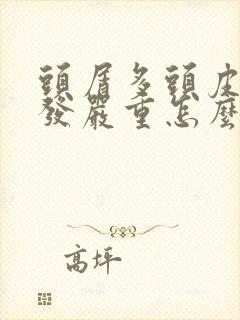 頭屑多頭皮
發嚴重怎麼
高坪